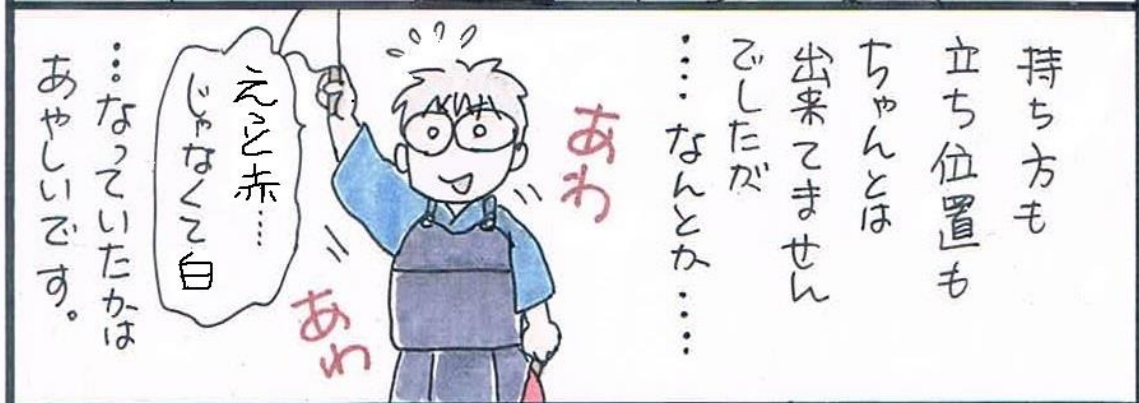 持ち方も
立ち位置も
ちゃんとは
出来てません
でしたが
‥‥なんとか‥‥
あわ
あわ
えっと赤……
じゃなくて白
…なっていたかは
あやしいです。